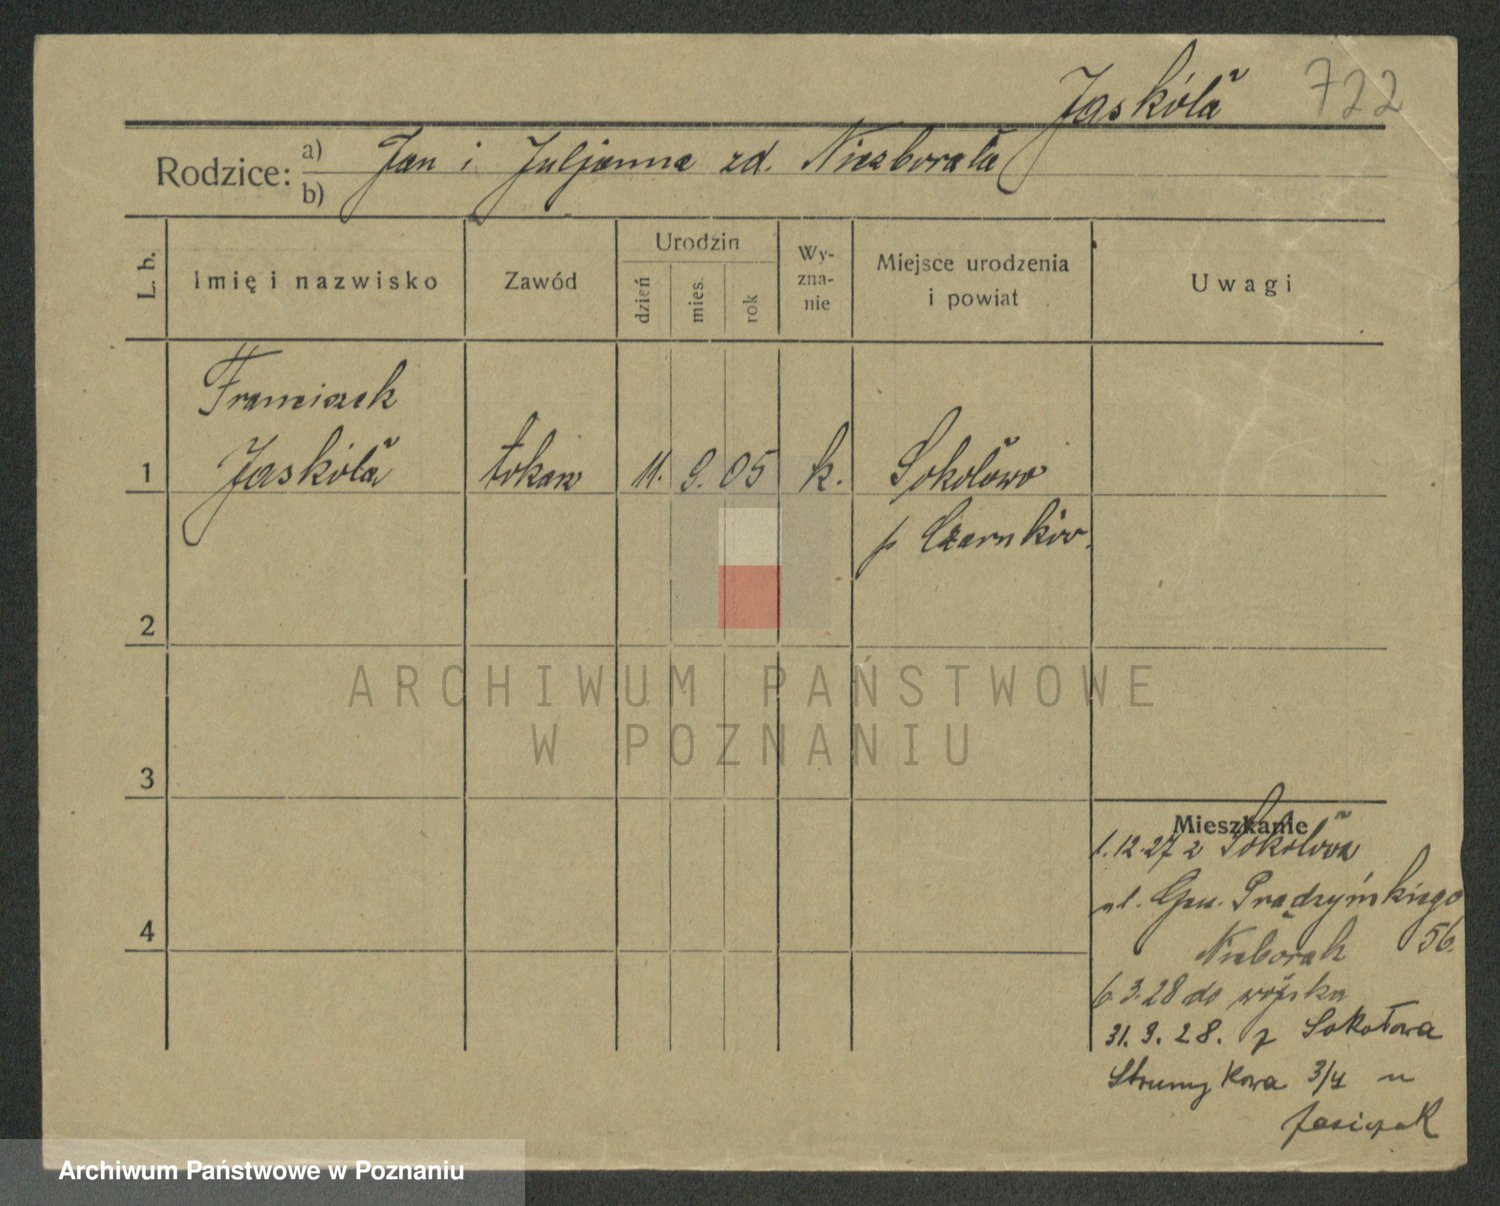 Jaskóła 722
Rodzice: a) Jan i Juljanna zd. Nieborała
b)
L. b.
Imię i nazwisko
Zawód
Urodzin
dzień
mies.
rok
Wy-
zna-
nie
Miejsce urodzenia
i powiat
Uwagi
Franciszek
1 Jaskóła tokarz 11. 9. 05 k. Sokołowo
p Czarnków.
2
3
4
ARCHIWUM PAŃSTWOWE
W POZNANIU
Mieszkanie
1.12.27 z Sokołowa
ul. Gen. Prądzyńskiego
Nieborak 56.
6.3.28 do wojska
31. 9. 28. z Sokołowa
Strumykowa 3/4 u
Jasiczak
Archiwum Państwowe w Poznaniu